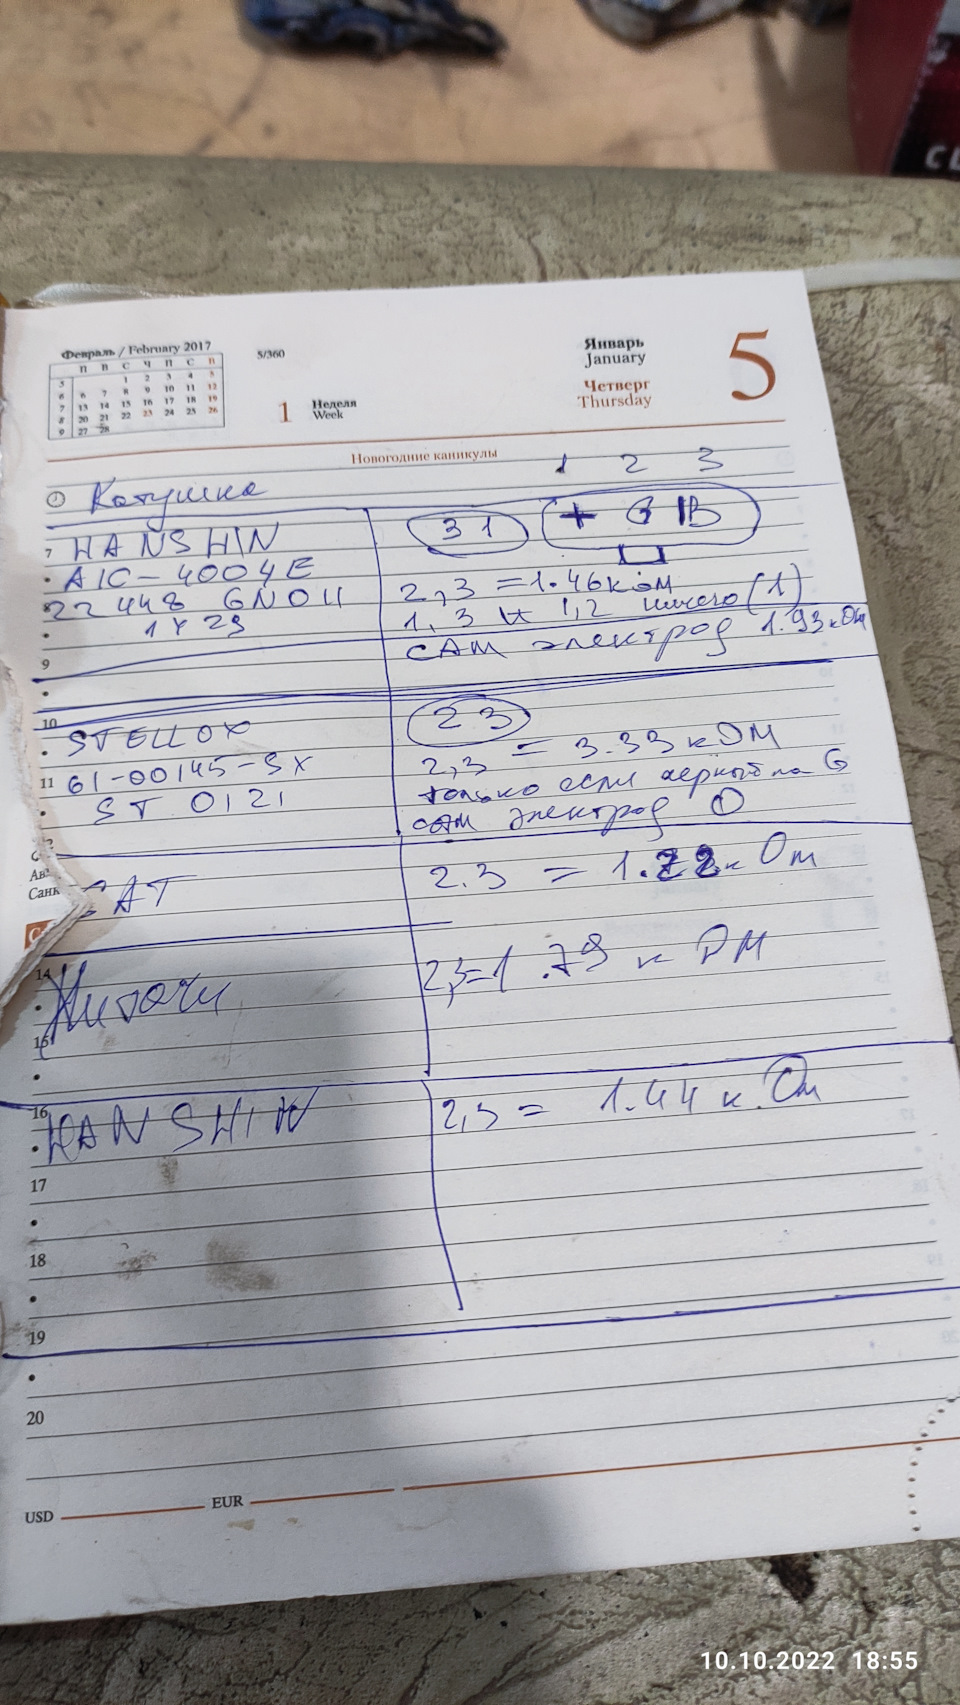 Февраль / February 2017
П В С Ч П С В
5 1 2 3 4 5
6 6 7 8 9 10 11 12
7 13 14 15 16 17 18 19
8 20 21 22 23 24 25 26
9 27 28
5/360
1 Неделя
Week
Январь
January
Четверг
Thursday
5
Новогодние каникулы
1 2 3
Катушка
31 + G IB
7 HANSHIN
AIC-4004E
22448 6N011
1Y29
2,3 = 1.46 кОм
1,3 и 1,2 ничего (1)
САМ электрод 1.93 кОм
8
9
10
STELLOX
11 61-00145-SX
ST 0121
23
2,3 = 3.33 кОМ
только если черный на G
сам электрод
2.3 = 1.22 к Ом
Санк
14
Китаочи
2,3=1.79 к ОМ
15
16
HANSHIN
2,3 = 1.44 к.Ом
17
18
19
20
USD
EUR
10.10.2022 18:55